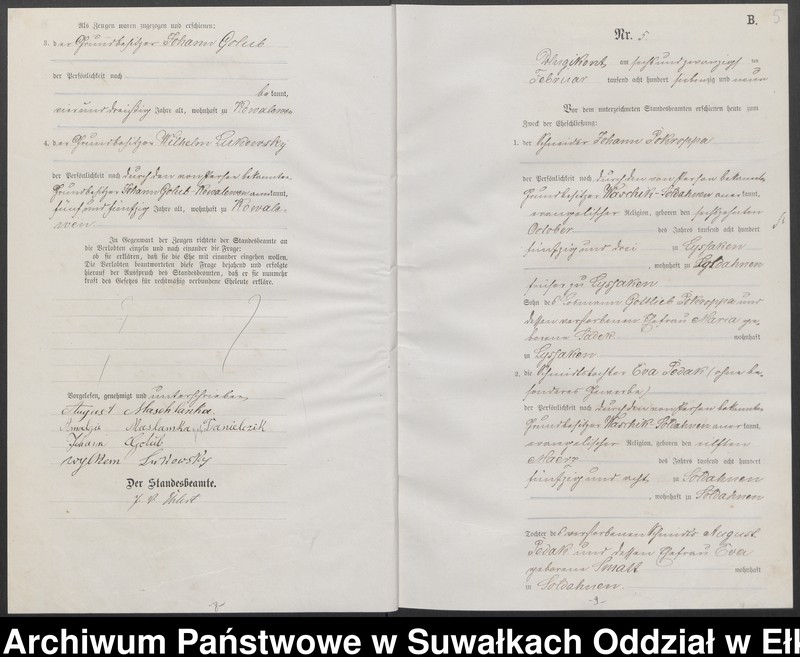 Als Zeugen waren zugezogen und erschienen:
3. der Grundbesitzer Johann Golub
der Persönlichkeit nach
be kannt,
vierunddreißig Jahre alt, wohnhaft zu Kowalewen
4. der Grundbesitzer Wilhelm Lukowsky
der Persönlichkeit nach durch den von Person bekannten
Grundbesitzer Johann Golub-Kowalewen anerkannt,
fünfundfünfzig Jahre alt, wohnhaft zu Kowale-
wen.
In Gegenwart der Zeugen richtete der Standesbeamte an
die Verlobten einzeln und nach einander die Frage:
ob sie erklären, daß sie die Ehe mit einander eingehen wollen.
Die Verlobten beantworteten diese Frage bejahend und erfolgte
hierauf der Ausspruch des Standesbeamten, daß er sie nunmehr
kraft des Gesetzes für rechtmäßig verbundene Eheleute erkläre.
Vorgelesen, genehmigt und unterschrieben
August Maschlanka
Maslamka Danielczik
Johann Golub
Wylhem Lukowsky
Der Standesbeamte.
B.
5
Nr. 5.
am sechsundzwanzigsten
Februar tausend acht hundert siebenzig und neun
Vor dem unterzeichneten Standesbeamten erschienen heute zum
Zweck der Eheschließung:
1. der Schneider Johann Pokroppa
der Persönlichkeit nach durch den von Person bekannten
Grundbesitzer Waschik-Soldahnen anerkannt,
evangelischer Religion, geboren den sechszehnten
October des Jahres tausend acht hundert
fünfzig und drei zu Lyssaken
, wohnhaft zu Soldahnen
früher zu Lyssaken
Sohn des Losmann Gottlieb Pokroppa und
dessen verstorbenen Ehefrau Maria ge-
borene wohnhaft
in Lyssaken
2. die Schmidtstochter Eva Pedak (ohne be-
sonderes Gewerbe)
der Persönlichkeit nach durch den von Person bekannten
Grundbesitzer Waschik-Soldahnen anerkannt,
evangelischer Religion, geboren den elften
Maerz des Jahres tausend acht hundert
fünfzig und acht zu Soldahnen
, wohnhaft zu Soldahnen
Tochter des verstorbenen Schmidts August
Pedak und dessen Ehefrau Eva
geborene Smatt wohnhaft
in Soldahnen.
Archiwum Państwowe w Suwałkach Oddział w Ełk